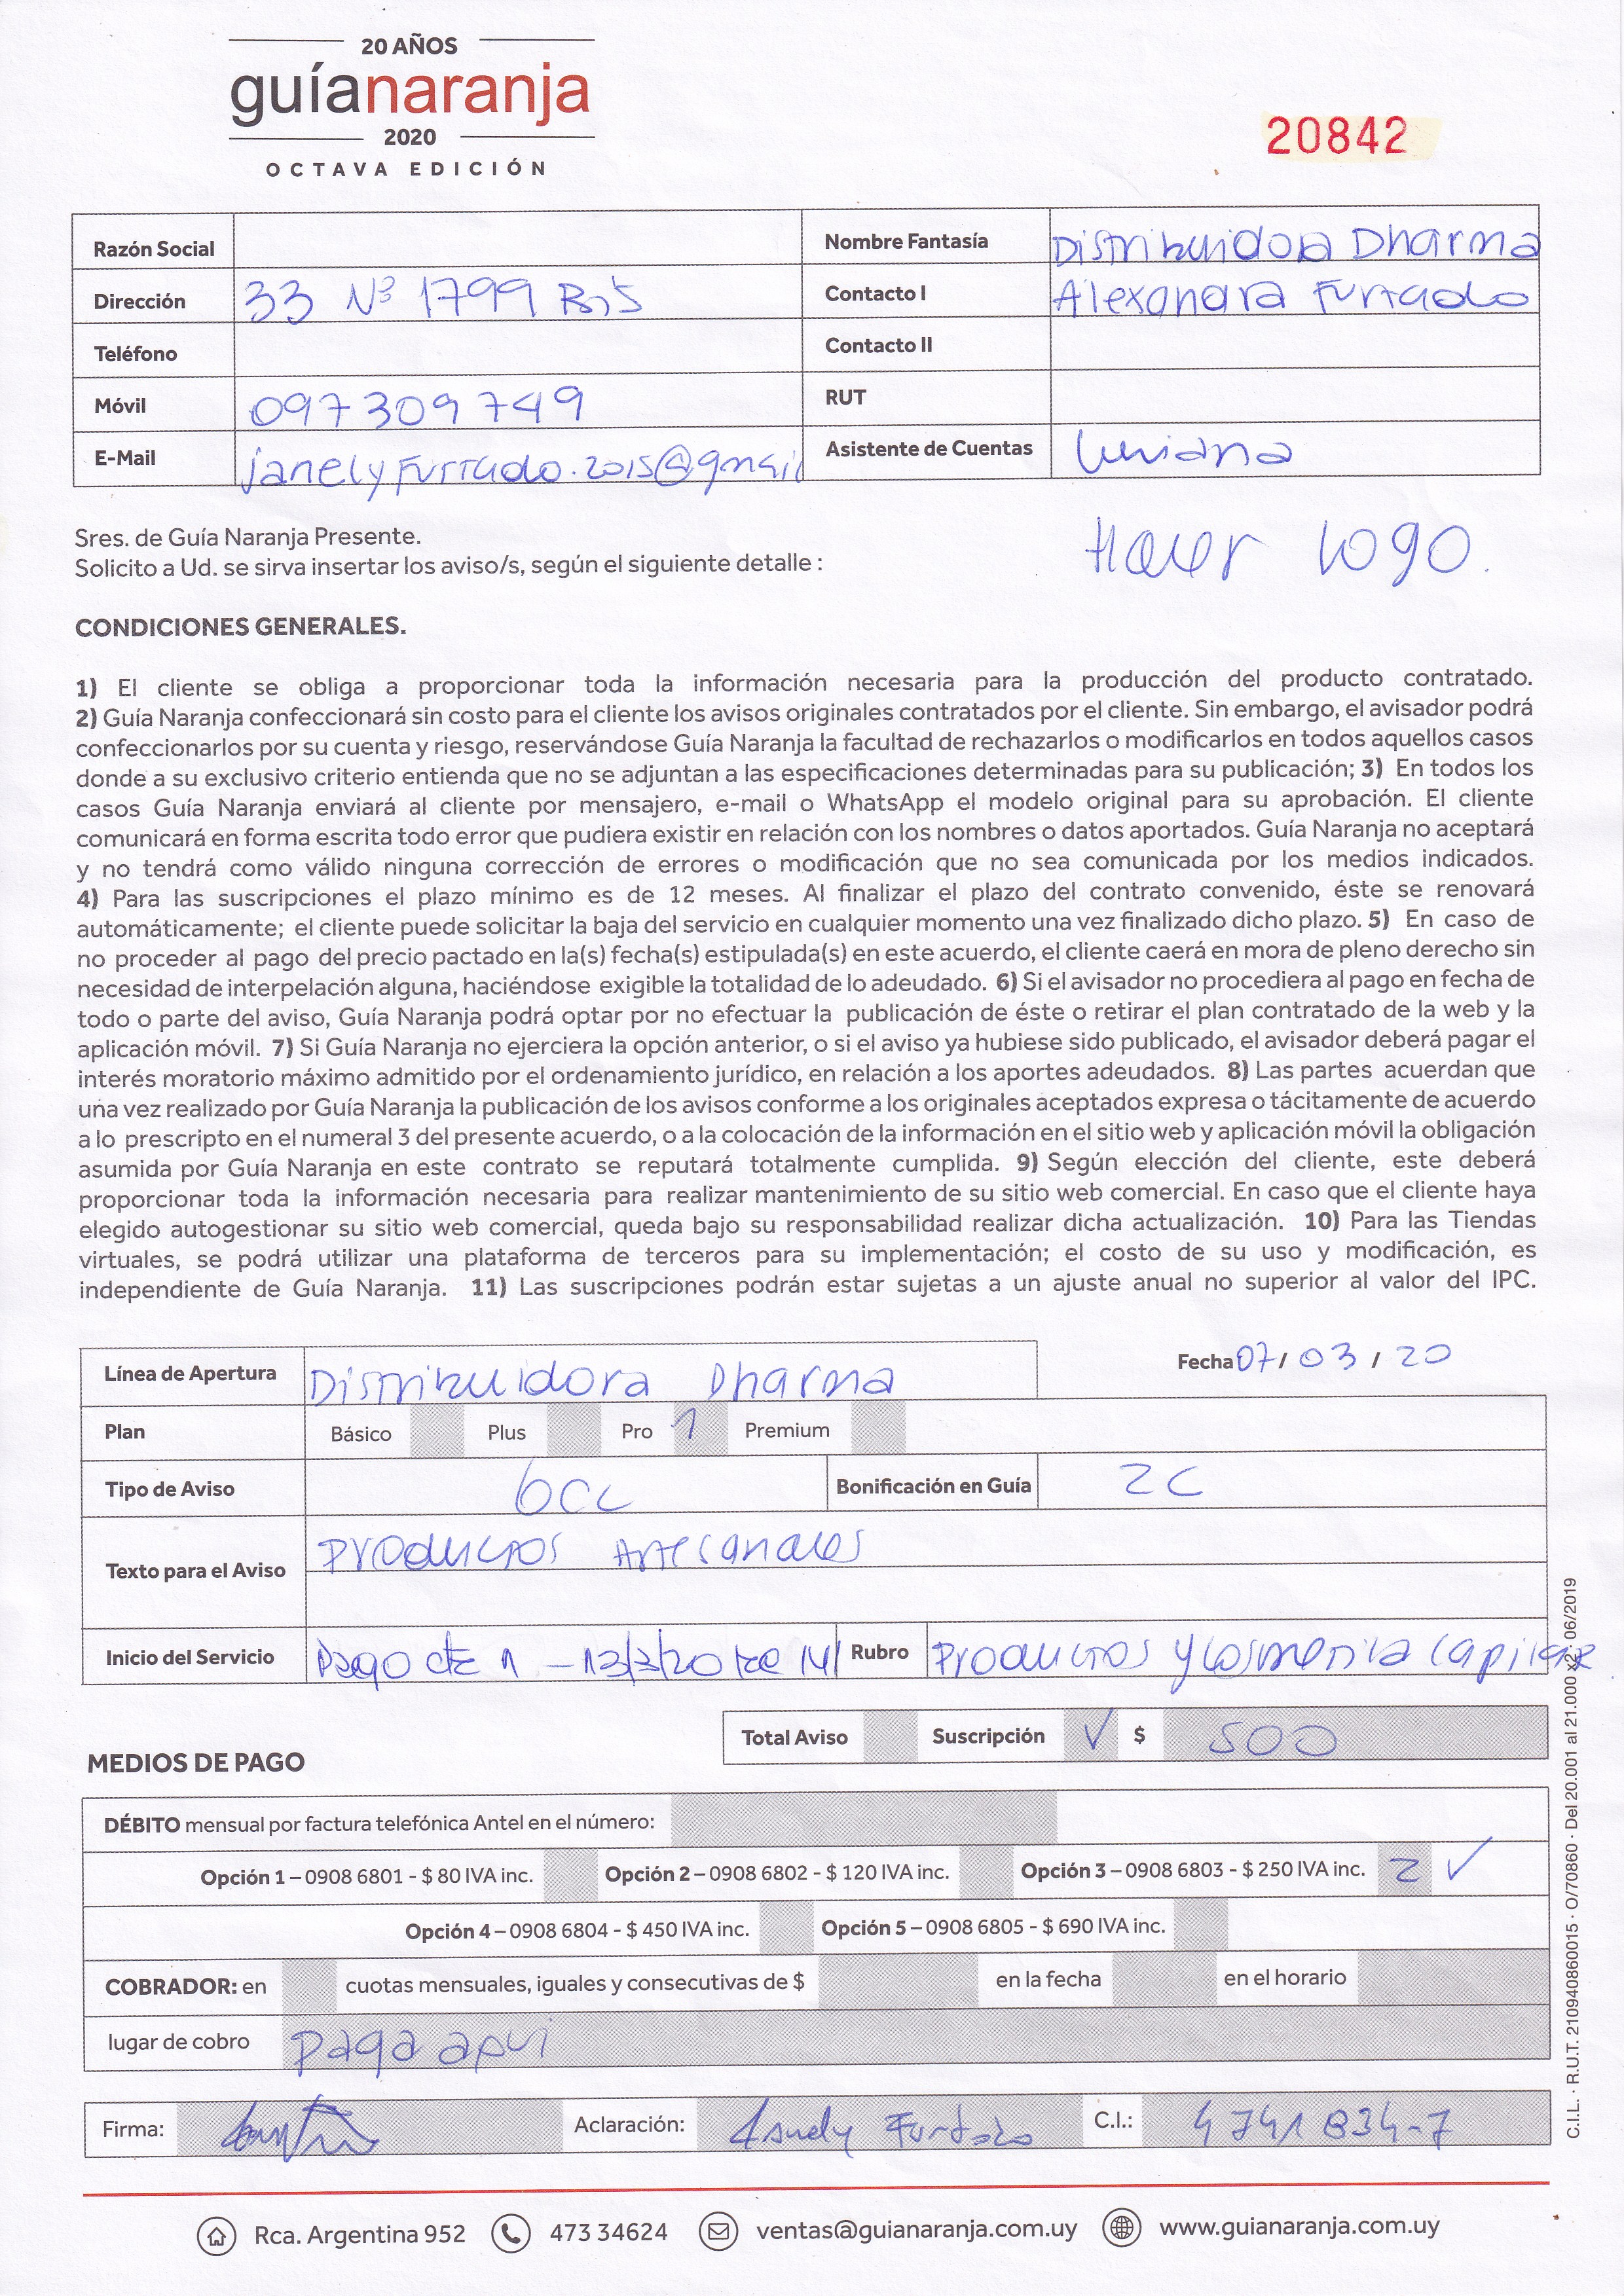 20 AÑOS
guíanaranja
2020
OCTAVA EDICIÓN
20842
Razón Social
Nombre Fantasía Distribuidora Dharma
Dirección 33 Nº 1799 Bis
Contacto I Alexandra Furtado
Teléfono
Contacto II
Móvil 097309749
RUT
E-Mail janelyfurtado.2015@gmail
Asistente de Cuentas
Sres. de Guía Naranja Presente.
Solicito a Ud. se sirva insertar los aviso/s, según el siguiente detalle :
Hacer logo.
CONDICIONES GENERALES.
1) El cliente se obliga a proporcionar toda la información necesaria para la producción del producto contratado.
2) Guía Naranja confeccionará sin costo para el cliente los avisos originales contratados por el cliente. Sin embargo, el avisador podrá
confeccionarlos por su cuenta y riesgo, reservándose Guía Naranja la facultad de rechazarlos o modificarlos en todos aquellos casos
donde a su exclusivo criterio entienda que no se adjuntan a las especificaciones determinadas para su publicación; 3) En todos los
casos Guía Naranja enviará al cliente por mensajero, e-mail o WhatsApp el modelo original para su aprobación. El cliente
comunicará en forma escrita todo error que pudiera existir en relación con los nombres o datos aportados. Guía Naranja no aceptará
y no tendrá como válido ninguna corrección de errores o modificación que no sea comunicada por los medios indicados.
4) Para las suscripciones el plazo mínimo es de 12 meses. Al finalizar el plazo del contrato convenido, éste se renovará
automáticamente; el cliente puede solicitar la baja del servicio en cualquier momento una vez finalizado dicho plazo. 5) En caso de
no proceder al pago del precio pactado en la(s) fecha(s) estipulada(s) en este acuerdo, el cliente caerá en mora de pleno derecho sin
necesidad de interpelación alguna, haciéndose exigible la totalidad de lo adeudado. 6) Si el avisador no procediera al pago en fecha de
todo o parte del aviso, Guía Naranja podrá optar por no efectuar la publicación de éste o retirar el plan contratado de la web y la
aplicación móvil. 7) Si Guía Naranja no ejerciera la opción anterior, o si el aviso ya hubiese sido publicado, el avisador deberá pagar el
interés moratorio máximo admitido por el ordenamiento jurídico, en relación a los aportes adeudados. 8) Las partes acuerdan que
una vez realizado por Guía Naranja la publicación de los avisos conforme a los originales aceptados expresa o tácitamente de acuerdo
a lo prescripto en el numeral 3 del presente acuerdo, o a la colocación de la información en el sitio web y aplicación móvil la obligación
asumida por Guía Naranja en este contrato se reputará totalmente cumplida. 9) Según elección del cliente, este deberá
proporcionar toda la información necesaria para realizar mantenimiento de su sitio web comercial. En caso que el cliente haya
elegido autogestionar su sitio web comercial, queda bajo su responsabilidad realizar dicha actualización. 10) Para las Tiendas
virtuales, se podrá utilizar una plataforma de terceros para su implementación; el costo de su uso y modificación, es
independiente de Guía Naranja. 11) Las suscripciones podrán estar sujetas a un ajuste anual no superior al valor del IPC.
Línea de Apertura Distribuidora Dharma
Fecha 07/ 03 / 20
Plan Básico Plus Pro 1 Premium
Tipo de Aviso 6CC
Bonificación en Guía 2C
Texto para el Aviso Productos Artesanales
Inicio del Servicio Pago 1 - 13/3/20
Rubro Productos y Cosmetica Capilar
Total Aviso Suscripción ✓ $ 500
MEDIOS DE PAGO
DÉBITO mensual por factura telefónica Antel en el número:
Opción 1 – 0908 6801 - $ 80 IVA inc. Opción 2 – 0908 6802 - $ 120 IVA inc. Opción 3 – 0908 6803 - $ 250 IVA inc. 2 ✓
Opción 4 – 0908 6804 - $ 450 IVA inc. Opción 5 – 0908 6805 - $ 690 IVA inc.
COBRADOR: en cuotas mensuales, iguales y consecutivas de $ en la fecha en el horario
lugar de cobro Paga aqui
Firma: Aclaración: Furtado C.I.: 4741834-7
Rca. Argentina 952 473 34624 ventas@guianaranja.com.uy www.guianaranja.com.uy
C.I.L. · R.U.T. 210940860015 · O/70860 · Del 20.001 al 21.000 x2 · 06/2019